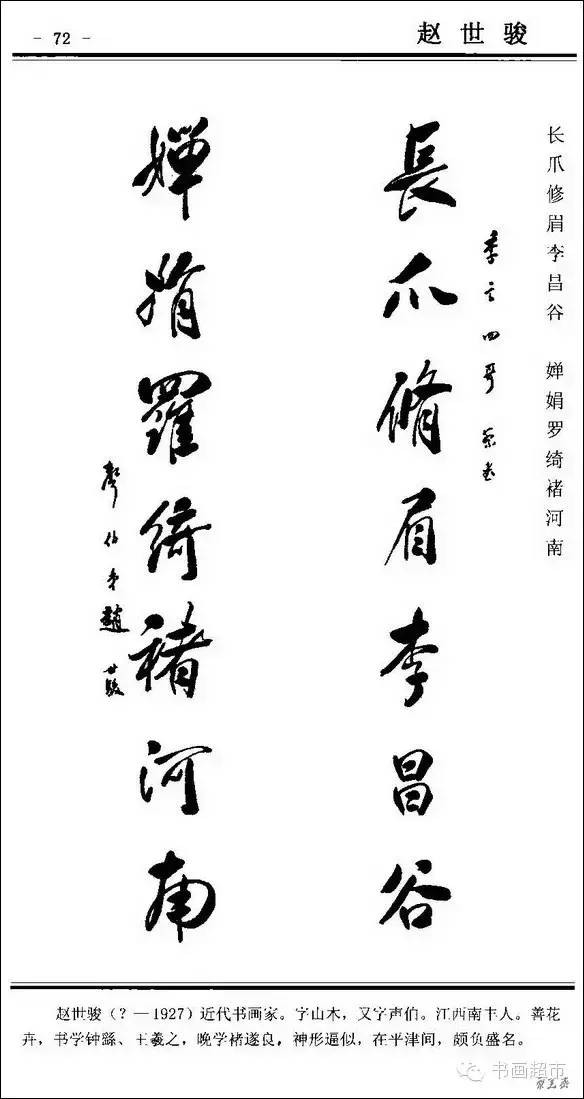 - 72 -
赵世骏
长爪修眉李昌谷 婵娟罗绮褚河南
季言四哥
長爪脩眉李昌谷
嬋娟羅綺褚河南
聲伯弟趙世駿
赵世骏(？—1927)近代书画家。字山木，又字声伯。江西南丰人。善花
卉，书学钟繇、王羲之，晚学褚遂良，神形逼似，在平津间，颇负盛名。
书画超市